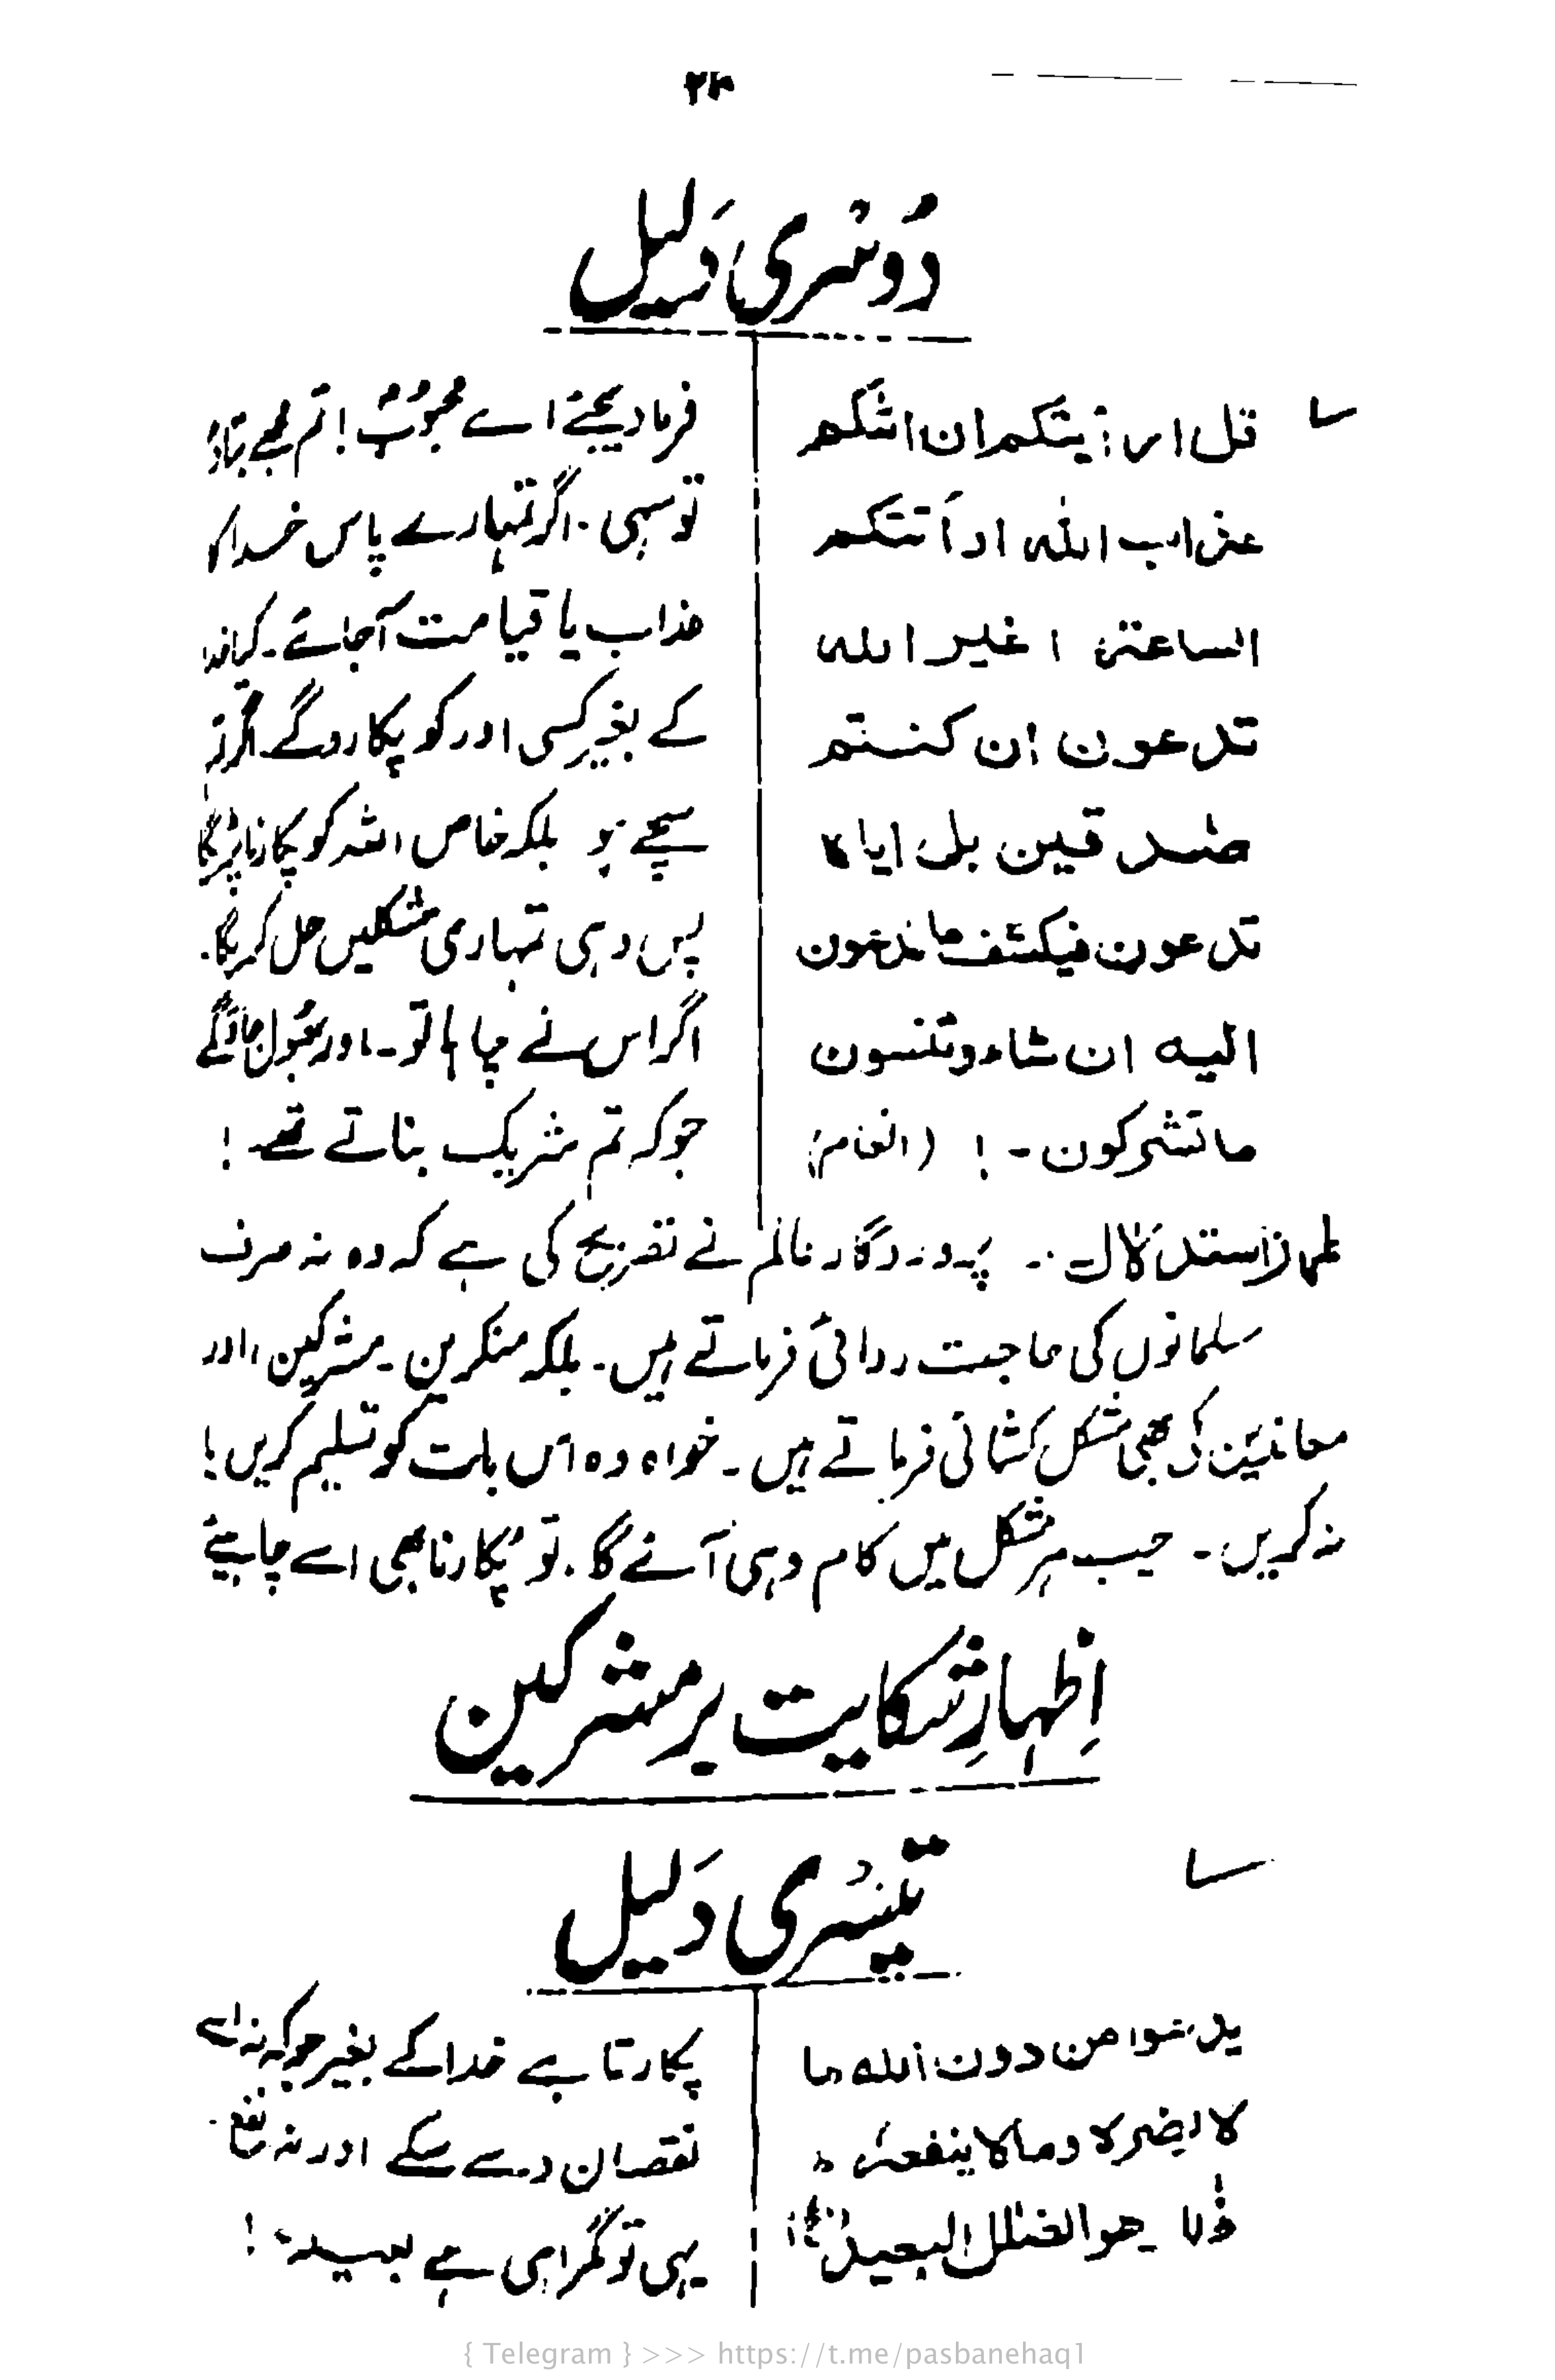 ۲۴
دُوسْری دَلیل
قل ارءیتکم ان اتٰکم
عذاب اللہ او اَتتکم
الساعۃ اغیر اللہ
تدعون ان کنتم
صٰدقین بل ایاہ
تدعون فیکشف ما تدعون
الیہ ان شاء وتنسون
ما تشرکون ۔ ! (انعام)
فرما دیجئے اے محبوبؐ! تم مجھے بتاؤ
تو سہی ۔ اگر تمہارے پاس خدا کا
عذاب یا قیامت آجائے ۔ کیا خدا
کے بغیر کسی اور کو پکارو گے ۔ اگر تم
سچے ہو بلکہ خاص اللہ کو پکارنا پڑیگا
پس وہی تمہاری مشکلیں حل کریگا ۔
اگر اس نے چاہا تو ۔ اور بھُول جاؤگے
جو کہ تم شریک بناتے تھے !
طرز استدلال :۔ پروردگار عالم نے تصریح کی ہے کہ وہ نہ صرف
مسلمانوں کی حاجت روائی فرماتے ہیں ۔ بلکہ منکرین ۔ مشرکین، اور
معاندین کی بھی مشکل کشائی فرماتے ہیں ۔ خواہ وہ اس بات کو تسلیم کریں یا
نہ کریں ۔ جب ہر مشکل میں کام وہی آئے گا . تو پُکارنا بھی اسے چاہیئے
اِظہارِ شکایت بر مشرکین
تیسْری دَلیل
یدعوا من دون اللہ ما
لا یضرہ وما لا ینفعہ
ذٰلک ھو الضلٰل البعید
پکارتا ہے خدا کے بغیر جو کہ نہ اسے
نقصان دے سکے اور نہ نفع
یہی تو گمراہی ہے بعید !
{ Telegram } >>> https://t.me/pasbanehaq1